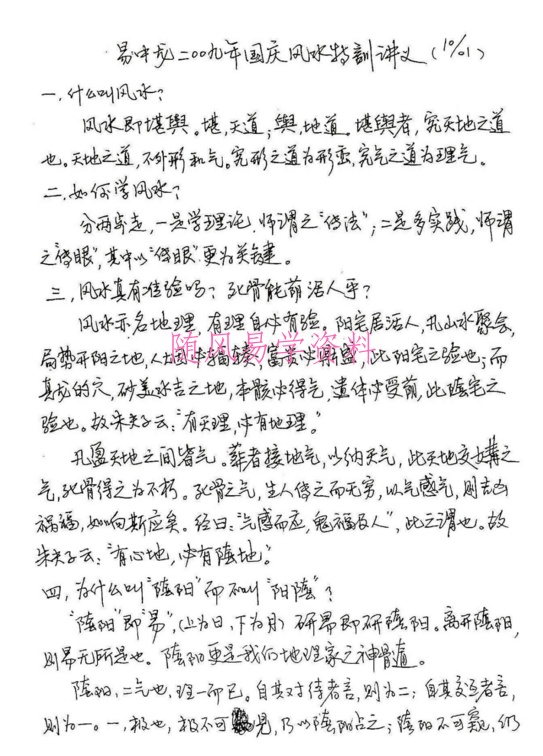 易中龙二00九年国庆风水特訓讲义(10/01)
一,什么叫风水?
风水即堪舆。堪,天道;舆,地道。堪舆者,究天地之道
也。天地之道,不外形和气。究形之道为形峦,究气之道为理气。
二,如何学风水?
分两步走,一是学理论,师谓之"传法";二是多实践,师谓
之"传眼",其中以"传眼"更为关键。
三,风水真有准验吗?死骨能荫活人乎?
风水亦名地理,有理自必有验。阳宅居活人,凡山水聚会,
局势开阳之地,人必,此阳宅之验也;而
真龙的穴,砂美水吉之地,本骸必得气,遗体必受荫,此陰宅之
验也。故朱夫子云:"有天理,必有地理。"
随风易学资料
凡盈天地之间皆气。葬者接地气,以纳天气,此天地交媾之
气,死骨得之为不朽。死骨之气,生人传之而无穷,以气感气,则吉凶
祸福,如向斯应矣。经曰:"气感而应,鬼福及人",此之谓也。故
朱夫子云:"有心地,必有陰地。"
四,为什么叫"陰阳"而不叫"阳陰"?
"陰阳"即"易",(上为日,下为月)研易即研陰阳。离开陰阳,
则易无所是也。陰阳更是我们地理家之神骨道。
陰阳,二气也,理一而已。自其对待者言,则为二;自其交互者言,
则为一。一,极也,极不可见,乃以陰阳占之;陰阳不可窥,仍